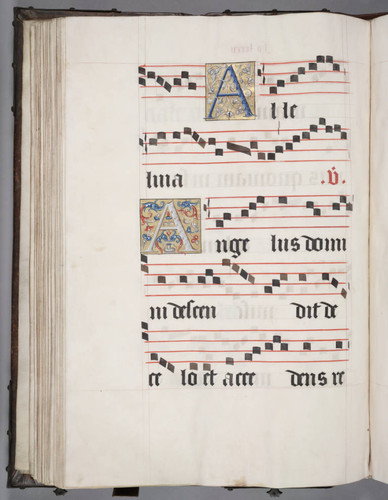 A lle
luia .v.
A nge lus domi
ni descen dit de
ce lo et acce dens re